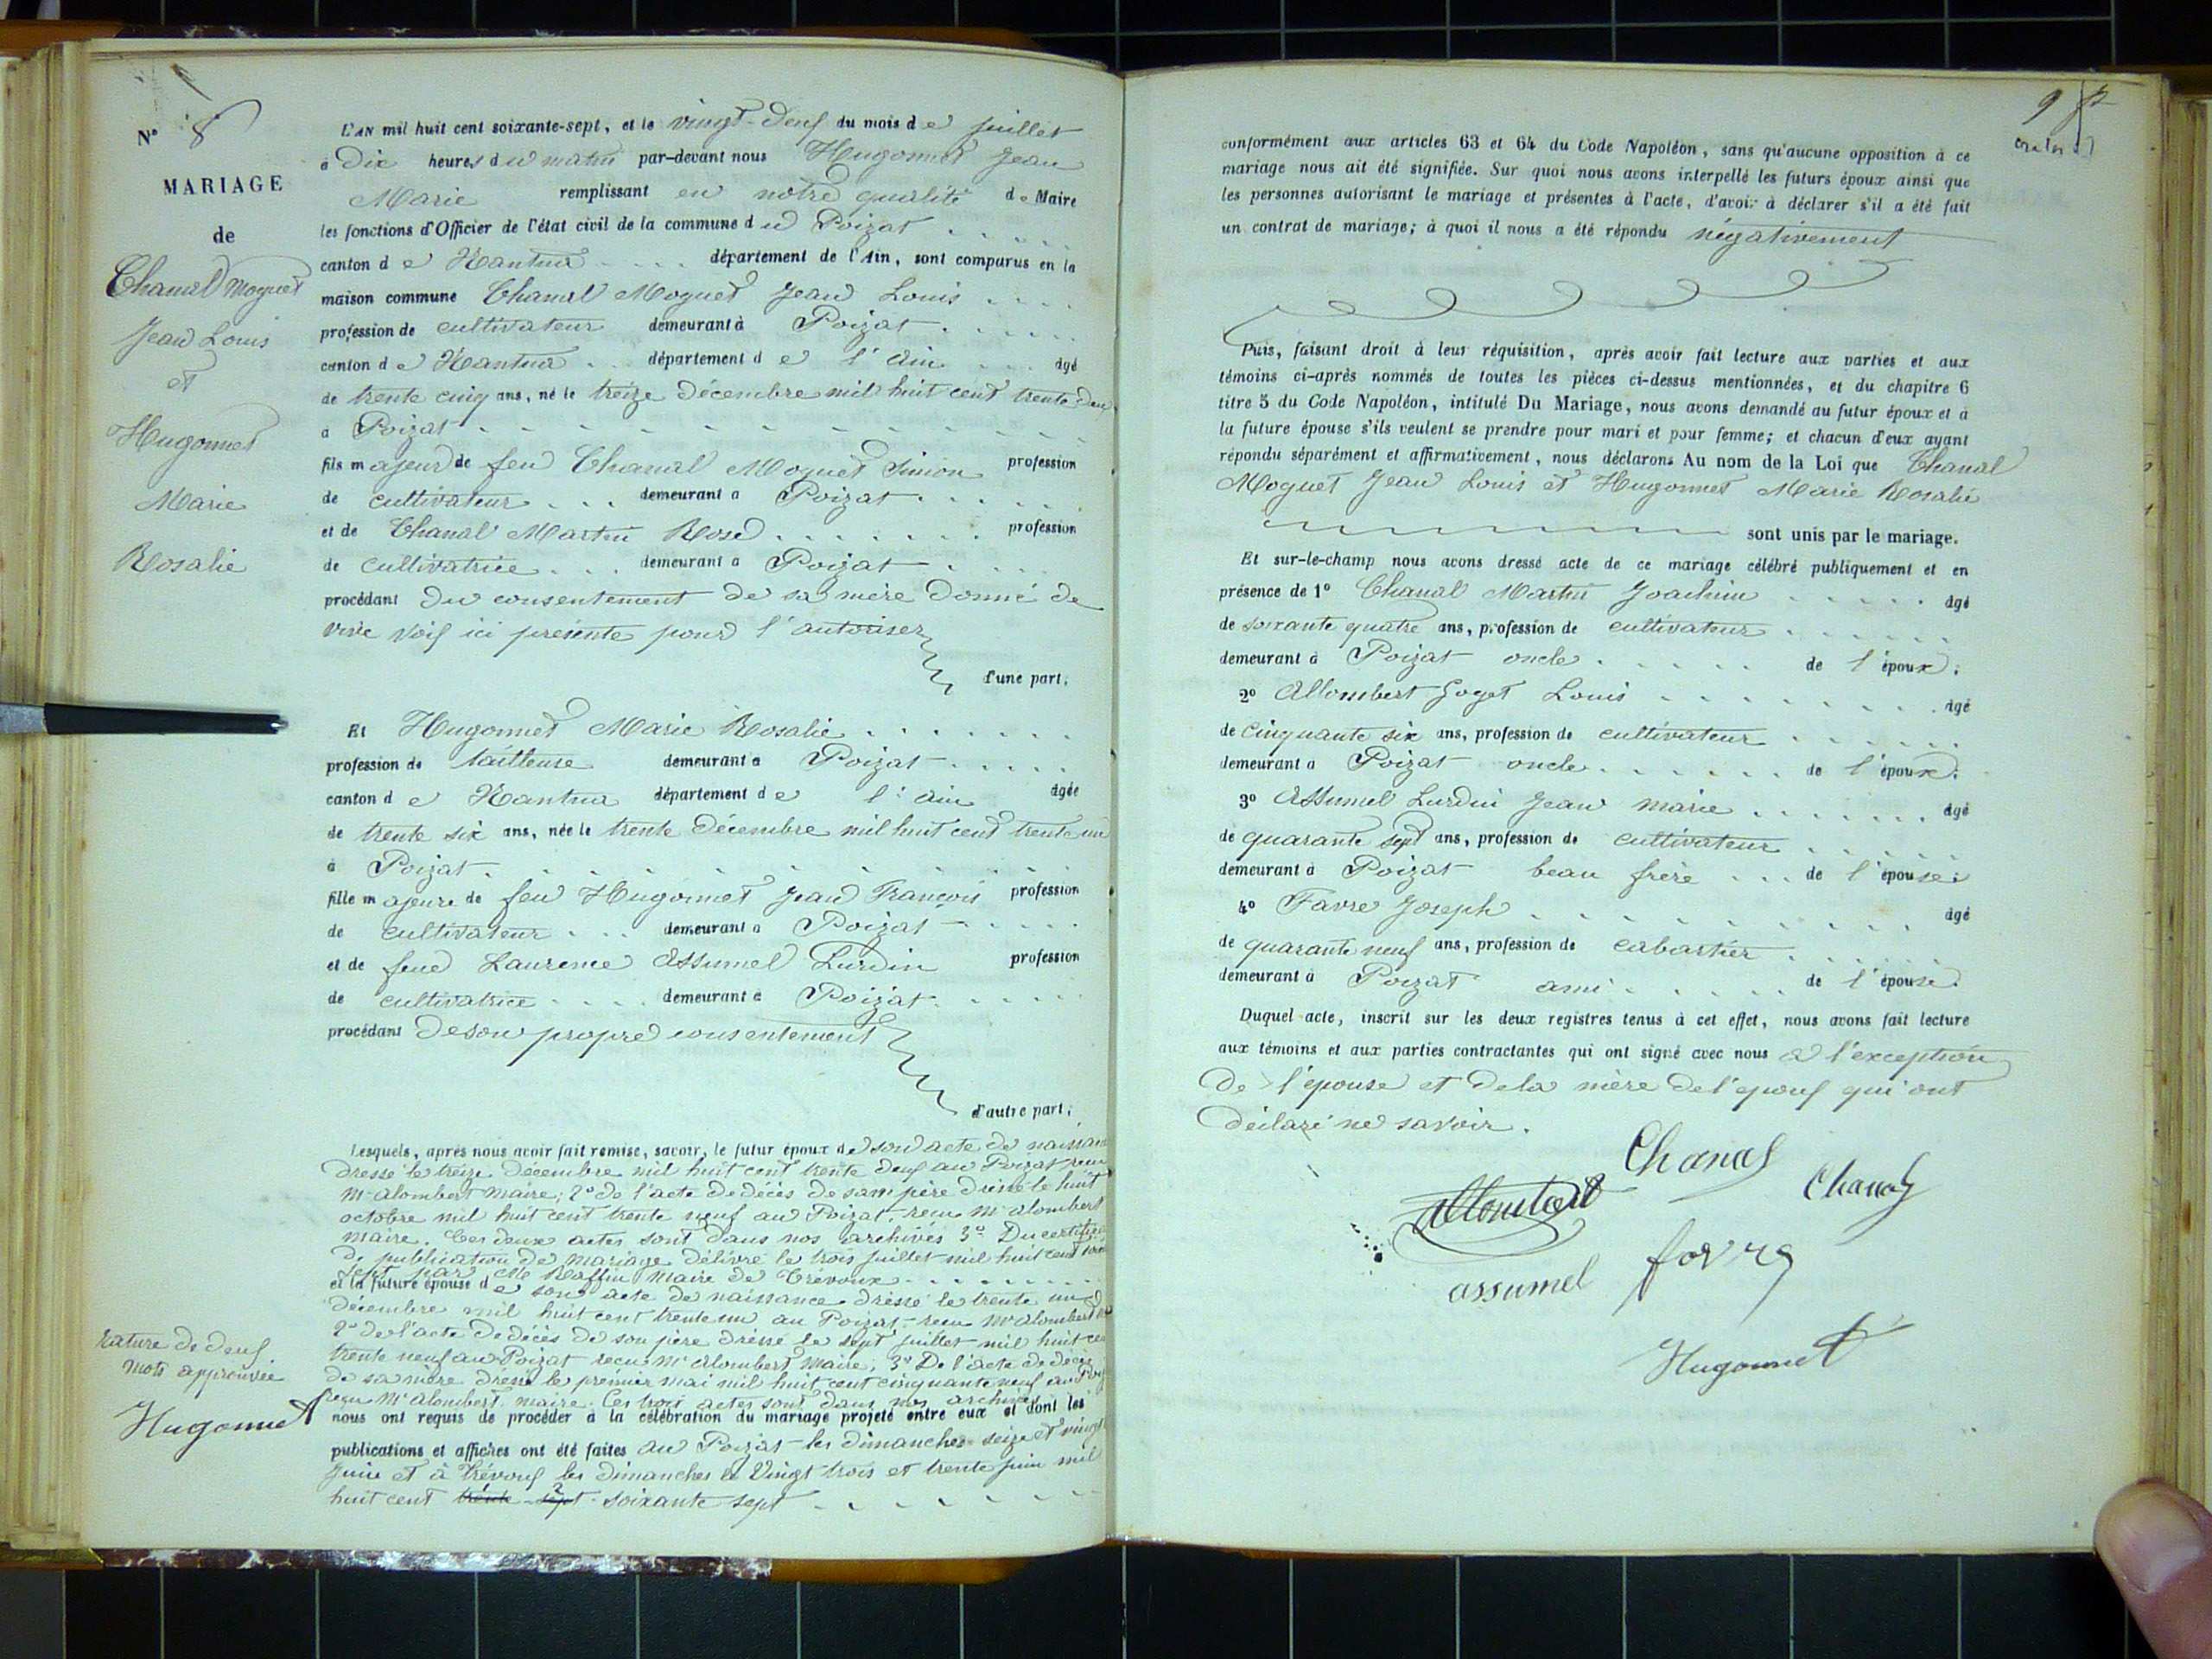 N° 8
MARIAGE
de
Chanal Moguet
Jean Louis
et
Hugonnet
Marie
Rosalie
L'AN mil huit cent soixante-sept, et le vingt-deux du mois de juillet
à Dix heures du matin par-devant nous Hugonnet Jean
Marie remplissant en notre qualité de Maire
les fonctions d'Officier de l'état civil de la commune du Poizat
canton de Nantua département de l'Ain, sont comparus en la
maison commune Chanal Moguet Jean Louis
profession de cultivateur demeurant à Poizat
canton de Nantua département de l'Ain âgé
de trente cinq ans, né le treize Décembre mil huit cent trente deux
à Poizat
fils majeur de feu Chanal Moguet Simon profession
de cultivateur demeurant à Poizat
et de Chanal Martin Rose profession
de cultivatrice demeurant à Poizat
procédant du consentement de sa mère donné de
vive voix ici présente pour l'autoriser
d'une part,
Et Hugonnet Marie Rosalie
profession de tailleuse demeurant à Poizat
canton de Nantua département de l'Ain âgée
de trente six ans, née le trente Décembre mil huit cent trente un
à Poizat
fille majeure de feu Hugonnet Jean François profession
de cultivateur demeurant à Poizat
et de feue Laurence Assumel Lurdin profession
de cultivatrice demeurant à Poizat
procédant de son propre consentement
d'autre part,
Lesquels, après nous avoir fait remise, savoir, le futur époux de son acte de naissance
dressé le treize Décembre mil huit cent trente deux au Poizat reçu
Mr Alombert Maire; 2° de l'acte de décès de son père dressé le huit
octobre mil huit cent trente neuf au Poizat, reçu Mr Alombert
maire. Ces deux actes sont dans nos archives 3° Du certificat
de publication de mariage délivré le trois juillet mil huit cent soixante
sept par Me Raffin Maire de Trévoux
et la future épouse de son acte de naissance dressé le trente un
décembre mil huit cent trente un au Poizat reçu Mr Alombert
2° de l'acte de décès de son père dressé le sept juillet mil huit cent
trente neuf au Poizat reçu Mr Alombert Maire; 3° De l'acte de décès
de sa mère dressé le premier mai mil huit cent cinquante neuf au Poizat
reçu Mr Alombert maire. Ces trois actes sont dans nos archives
nous ont requis de procéder à la célébration du mariage projeté entre eux et dont les
publications et affiches ont été faites au Poizat les dimanches seize et vingt
juin et à Trévoux les dimanches le vingt trois et trente juin mil
huit cent trente sept 2 soixante sept
Rature de deux
mots approuvée
Hugonnet
9
conformément aux articles 63 et 64 du Code Napoléon, sans qu'aucune opposition à ce
mariage nous ait été signifiée. Sur quoi nous avons interpellé les futurs époux ainsi que
les personnes autorisant le mariage et présentes à l'acte, d'avoir à déclarer s'il a été fait
un contrat de mariage; à quoi il nous a été répondu négativement
Puis, faisant droit à leur réquisition, après avoir fait lecture aux parties et aux
témoins ci-après nommés de toutes les pièces ci-dessus mentionnées, et du chapitre 6
titre 5 du Code Napoléon, intitulé Du Mariage, nous avons demandé au futur époux et à
la future épouse s'ils veulent se prendre pour mari et pour femme; et chacun d'eux ayant
répondu séparément et affirmativement, nous déclarons Au nom de la Loi que Chanal
Moguet Jean Louis et Hugonnet Marie Rosalie
sont unis par le mariage.
Et sur-le-champ nous avons dressé acte de ce mariage célébré publiquement et en
présence de 1° Chanal Martin Joachim âgé
de soixante quatre ans, profession de cultivateur
demeurant à Poizat oncle de l'époux.
2° Allombert Goget Louis âgé
de cinquante six ans, profession de cultivateur
demeurant à Poizat oncle de l'époux.
3° Assumel Lurdin Jean Marie âgé
de quarante sept ans, profession de cultivateur
demeurant à Poizat beau frère de l'épouse
4° Favre Joseph âgé
de quarante neuf ans, profession de cabartier
demeurant à Poizat ami de l'épouse.
Duquel acte, inscrit sur les deux registres tenus à cet effet, nous avons fait lecture
aux témoins et aux parties contractantes qui ont signé avec nous à l'exception
De l'épouse et de la mère de l'époux qui ont
déclaré ne savoir.
Chanal
Allombert
Chanal
assumel
favre
Hugonnet